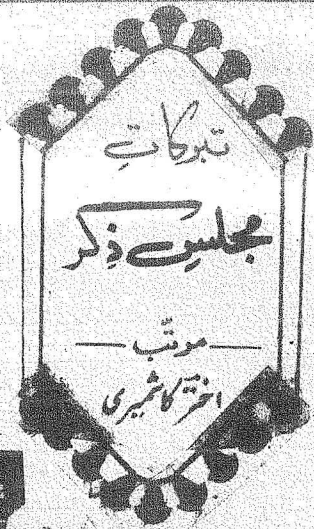 تبرکاتِ
مجلسِ ذِکر
مرتّب
اختر کاشمیری